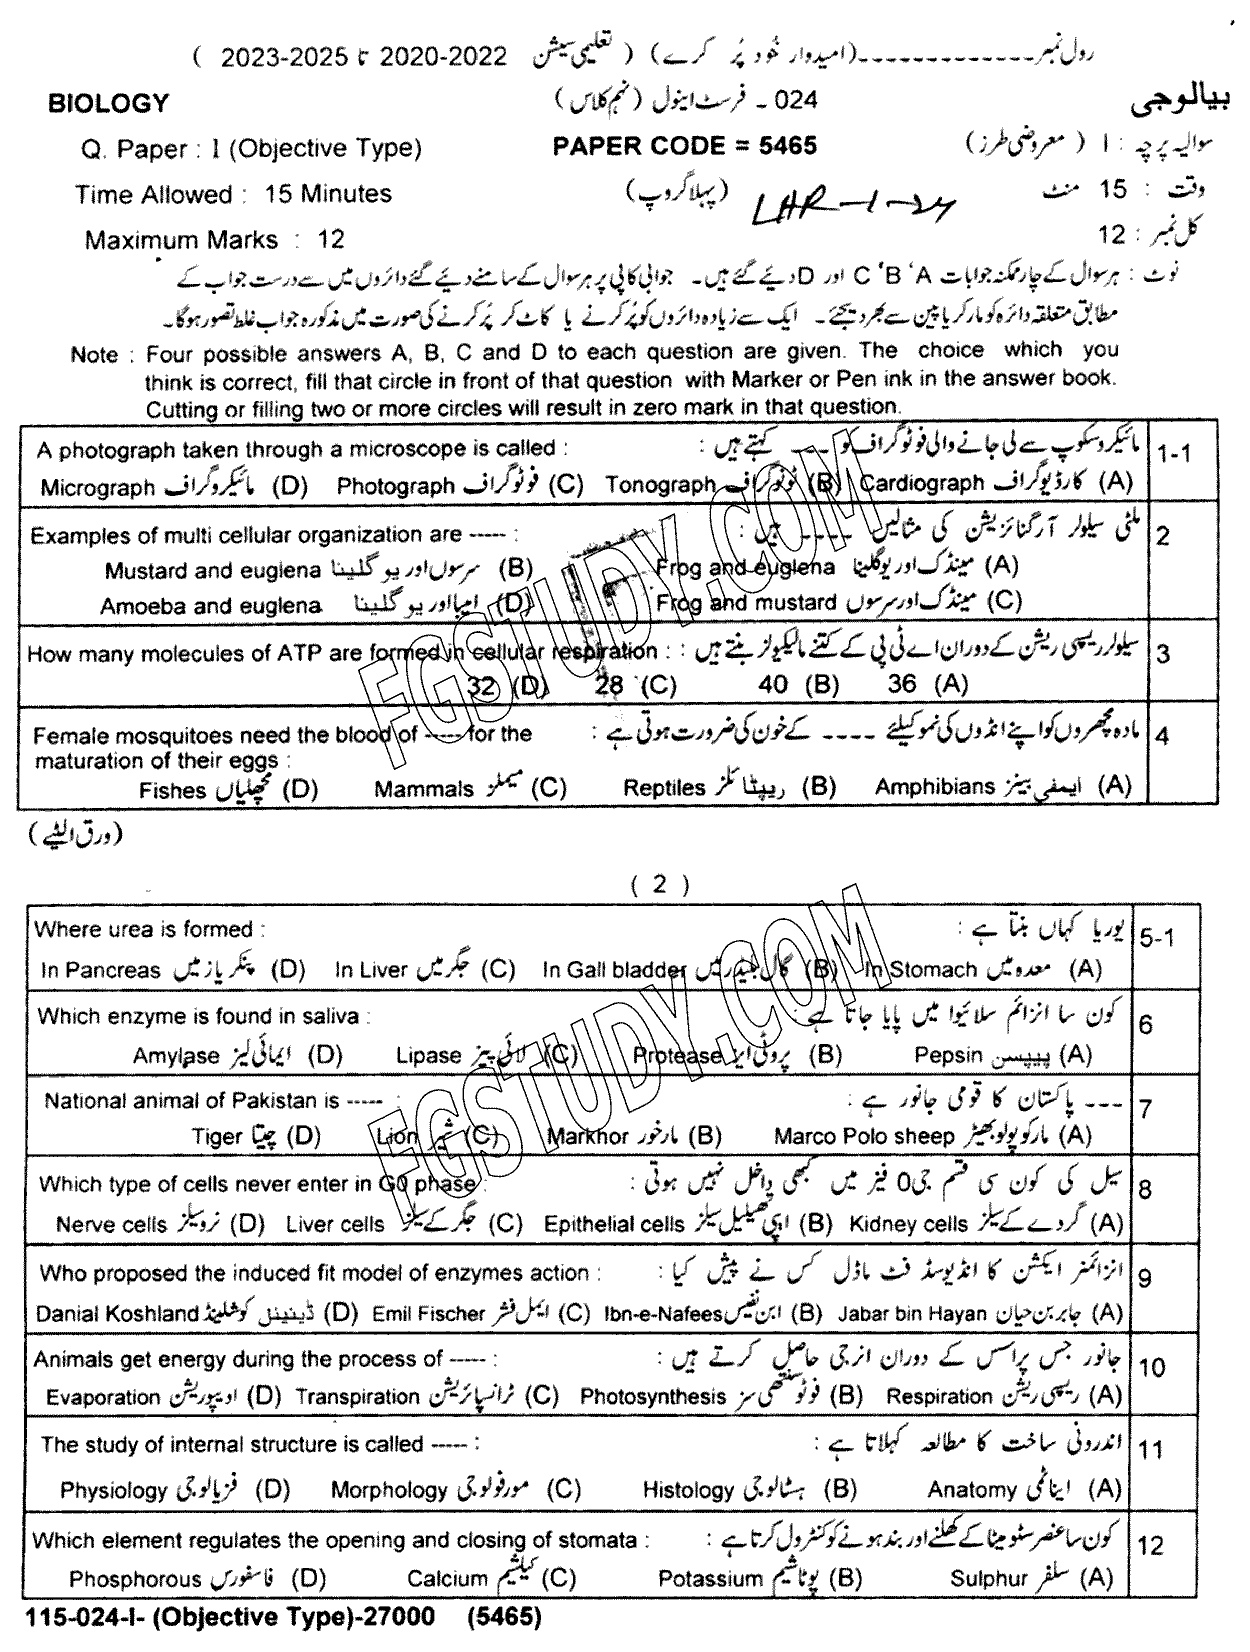 رول نمبر-------------(امیدوار خود پُر کرے) ( تعلیمی سیشن 2020-2022 تا 2023-2025 )
BIOLOGY 024 ۔ فرسٹ اینول (نہم کلاس) بیالوجی
Q. Paper : I (Objective Type) PAPER CODE = 5465 سوالیہ پرچہ : I ( معروضی طرز )
Time Allowed : 15 Minutes (پہلا گروپ) LHR-1-24 وقت : 15 منٹ
Maximum Marks : 12 کل نمبر : 12
نوٹ : ہر سوال کے چار ممکنہ جوابات A ' B ' C اور D دیئے گئے ہیں۔ جوابی کاپی پر ہر سوال کے سامنے دیئے گئے دائروں میں سے درست جواب کے
مطابق متعلقہ دائرہ کو مارکر یا پین سے بھر دیجئے۔ ایک سے زیادہ دائروں کو پُر کرنے یا کاٹ کر پُر کرنے کی صورت میں مذکورہ جواب غلط تصور ہوگا۔
Note : Four possible answers A, B, C and D to each question are given. The choice which you
think is correct, fill that circle in front of that question with Marker or Pen ink in the answer book.
Cutting or filling two or more circles will result in zero mark in that question.
A photograph taken through a microscope is called : مائیکروسکوپ سے لی جانے والی فوٹوگراف کو ---- کہتے ہیں : 1-1
Micrograph مائیکروگراف (D) Photograph فوٹوگراف (C) Tonograph ٹونوگراف (B) Cardiograph کارڈیوگراف (A)
Examples of multi cellular organization are ----- : ملٹی سیلولر آرگنائزیشن کی مثالیں ---- ہیں : 2
Mustard and euglena سرسوں اور یوگلینا (B) Frog and euglena مینڈک اور یوگلینا (A)
Amoeba and euglena امیبا اور یوگلینا (D) Frog and mustard مینڈک اور سرسوں (C)
How many molecules of ATP are formed in cellular respiration : سیلولر ریسپی ریشن کے دوران اے ٹی پی کے کتنے مالیکیولز بنتے ہیں : 3
32 (D) 28 (C) 40 (B) 36 (A)
Female mosquitoes need the blood of ----- for the مادہ مچھروں کو اپنے انڈوں کی نمو کیلئے ---- کے خون کی ضرورت ہوتی ہے : 4
maturation of their eggs :
Fishes مچھلیاں (D) Mammals میملز (C) Reptiles ریپٹائلز (B) Amphibians ایمفی بینز (A)
(ورق الٹیے)
( 2 )
Where urea is formed : یوریا کہاں بنتا ہے : 5-1
In Pancreas پنکریاز میں (D) In Liver جگر میں (C) In Gall bladder گال بلیڈر میں (B) In Stomach معدہ میں (A)
Which enzyme is found in saliva : کون سا انزائم سلائیوا میں پایا جاتا ہے : 6
Amylase ایمائی لیز (D) Lipase لائی پیز (C) Protease پروٹی ایز (B) Pepsin پیپسن (A)
National animal of Pakistan is ----- : --- پاکستان کا قومی جانور ہے : 7
Tiger چیتا (D) Lion شیر (C) Markhor مارخور (B) Marco Polo sheep مارکوپولو بھیڑ (A)
Which type of cells never enter in G0 phase : سیل کی کون سی قسم جی0 فیز میں کبھی داخل نہیں ہوتی : 8
Nerve cells نرو سیلز (D) Liver cells جگر کے سیلز (C) Epithelial cells اپی تھیلیل سیلز (B) Kidney cells گردے کے سیلز (A)
Who proposed the induced fit model of enzymes action : انزائمز ایکشن کا انڈیوسڈ فٹ ماڈل کس نے پیش کیا : 9
Danial Koshland ڈینیئل کوشلینڈ (D) Emil Fischer ایمل فشر (C) Ibn-e-Nafees ابن نفیس (B) Jabar bin Hayan جابر بن حیان (A)
Animals get energy during the process of ----- : جانور جس پراسس کے دوران انرجی حاصل کرتے ہیں : 10
Evaporation ایویپوریشن (D) Transpiration ٹرانسپائریشن (C) Photosynthesis فوٹوسنتھی سز (B) Respiration ریسپی ریشن (A)
The study of internal structure is called ----- : اندرونی ساخت کا مطالعہ کہلاتا ہے : 11
Physiology فزیالوجی (D) Morphology مورفولوجی (C) Histology ہسٹالوجی (B) Anatomy ایناٹمی (A)
Which element regulates the opening and closing of stomata : کون سا عنصر سٹومیٹا کے کھلنے اور بند ہونے کو کنٹرول کرتا ہے : 12
Phosphorous فاسفورس (D) Calcium کیلشیم (C) Potassium پوٹاشیم (B) Sulphur سلفر (A)
115-024-I- (Objective Type)-27000 (5465)
FGSTUDY.COM
FGSTUDY.COM